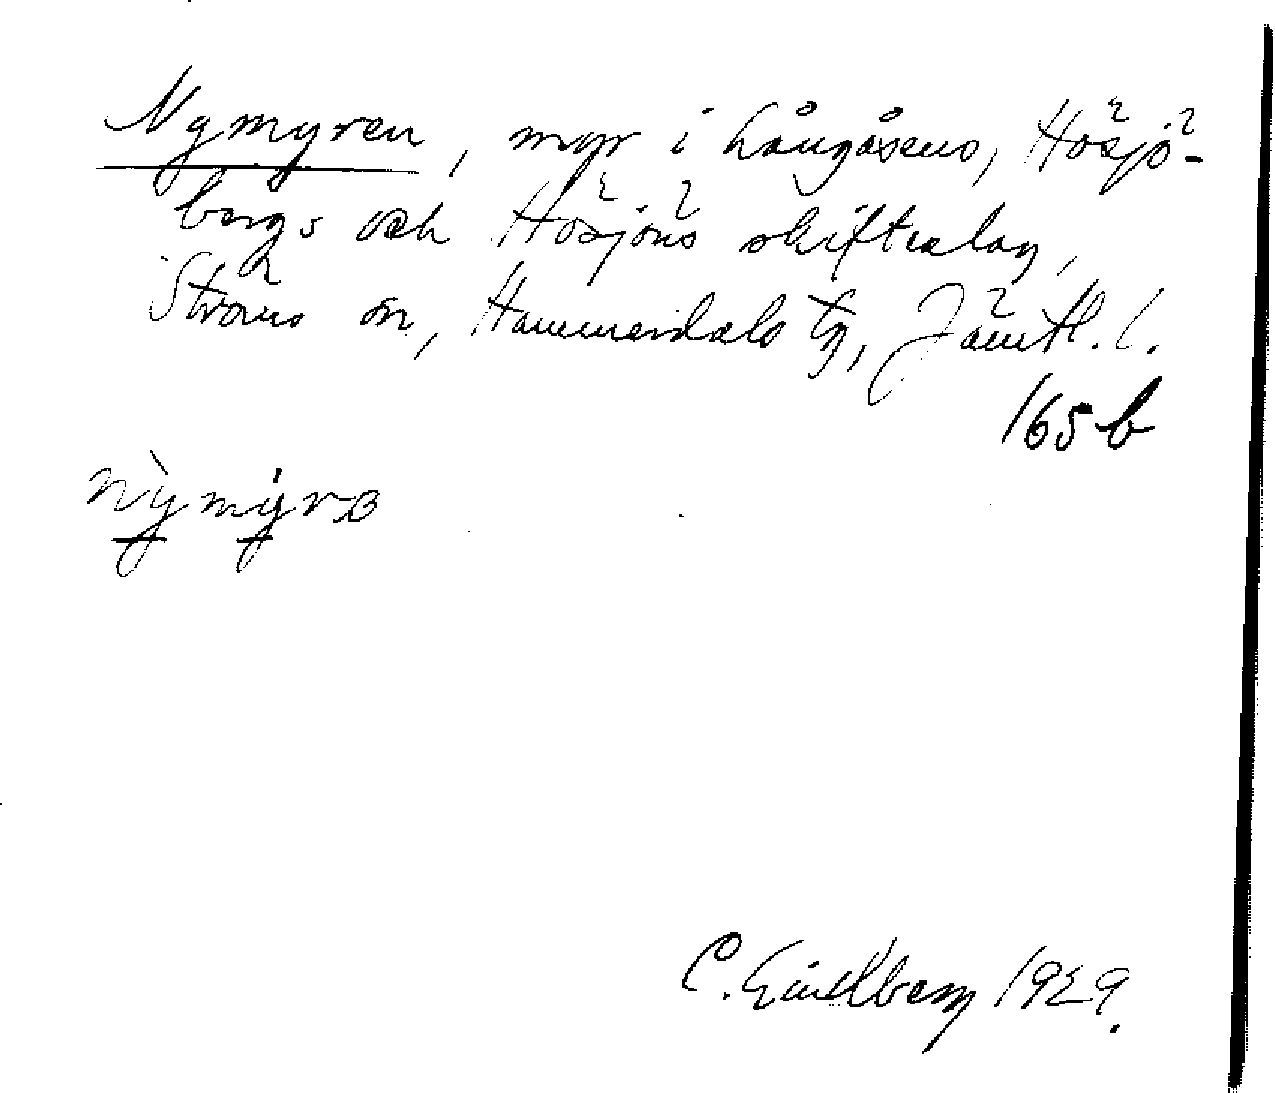 Nymyren, myr i Långåsens, Hösjö-
bergs och Hösjöns skifteslag,
Ströms sn, Hammerdals tg, Jämtl. l.
165 b
nỳmýrɞ
C. Lindberg 1929.